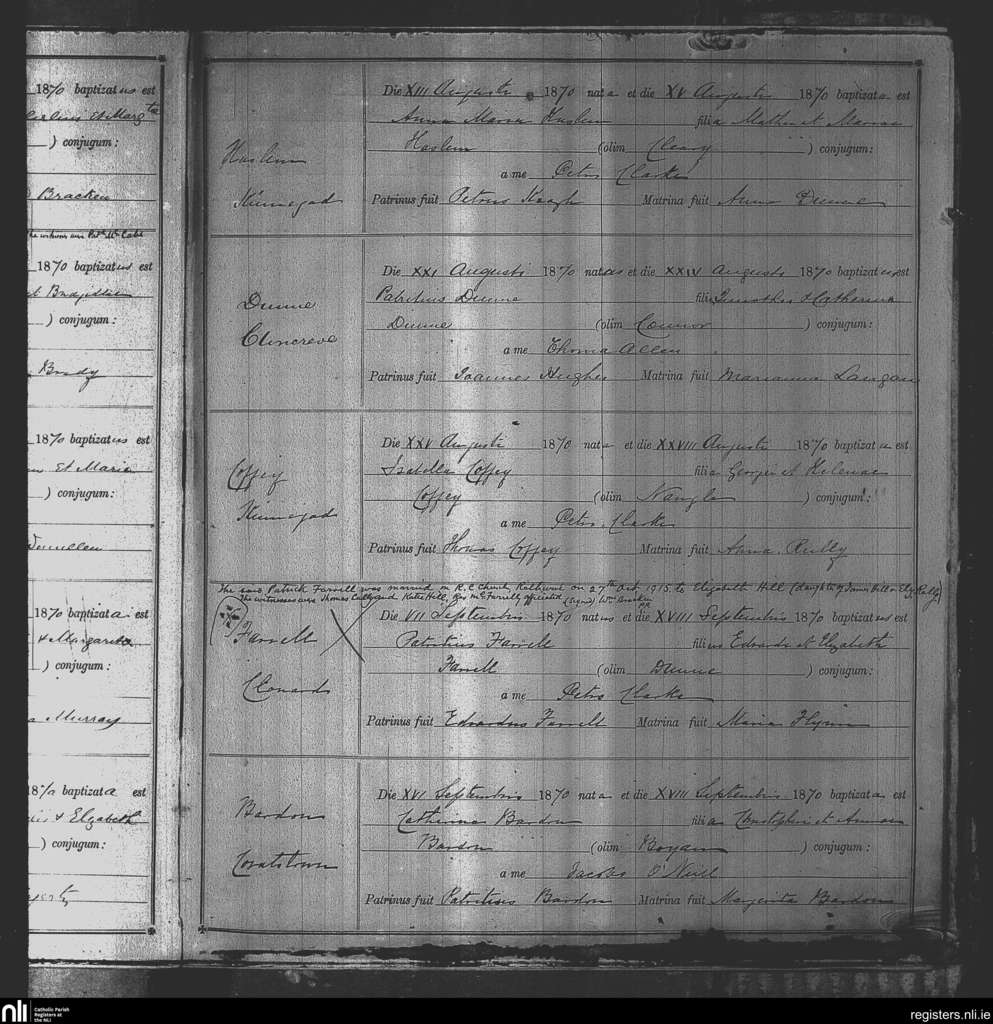 1870 baptizatus est
et Margta
) conjugum:
Bracken
1870 baptizatus est
et Bridgittae
) conjugum:
Brady
1870 baptizatus est
et Maria
) conjugum:
1870 baptizata est
& Margarita
) conjugum:
Murray
1870 baptizata est
& Elizabeth
) conjugum:
Die XIII Augusti 1870 nata et die XV Augusti 1870 baptizata est
Anna Maria Haslem filia Mathei et Mariae
Haslem (olim Cleary ) conjugum:
Haslem
a me Petro Clarke
Kinnegad
Patrinus fuit Petrus Keogh Matrina fuit Anna Dunne
Die XXI Augusti 1870 natus et die XXIV Augusti 1870 baptizatus est
Patritius Dunne fili Timothei & Catherina
Dunne
Dunne (olim Connor ) conjugum:
Clincreve
a me Thoma Allen
Patrinus fuit Joannes Hughes Matrina fuit Marianna Langan
Die XXV Augusti 1870 nata et die XXVIII Augusti 1870 baptizata est
Isabella Coffey filia Georgii et Helenae
Coffey
Coffey (olim Nangle ) conjugum:
Kinnegad
a me Petro Clarke
Patrinus fuit Thomas Coffey Matrina fuit Anna Reilly
The said Patrick Farrell was married in R.C. Church, on 27th Oct 1915, to Elizabeth Hill (daughter of James Hill
The witnesses were Thomas Katie Hill, Rev officiated (signed) Wm Bracken PP
Die VII Septembris 1870 natus et die XVIII Septembris 1870 baptizatus est
Farrell
Patritius Farrell filius Edwardi et Elizabeth
Farrell (olim Dunne ) conjugum:
Clonard
a me Petro Clarke
Patrinus fuit Edvardus Farrell Matrina fuit Maria Flynn
Die XVI Septembris 1870 nata et die XVIII Septembris 1870 baptizata est
Bardon
Catherina Bardon filia Christopheri et Annae
Bardon (olim Boyan ) conjugum:
Coratstown
a me Jacobo O'Neill
Patrinus fuit Patritius Bardon Matrina fuit Margarita Bardon
nli Catholic Parish
Registers at
the NLI
registers.nli.ie